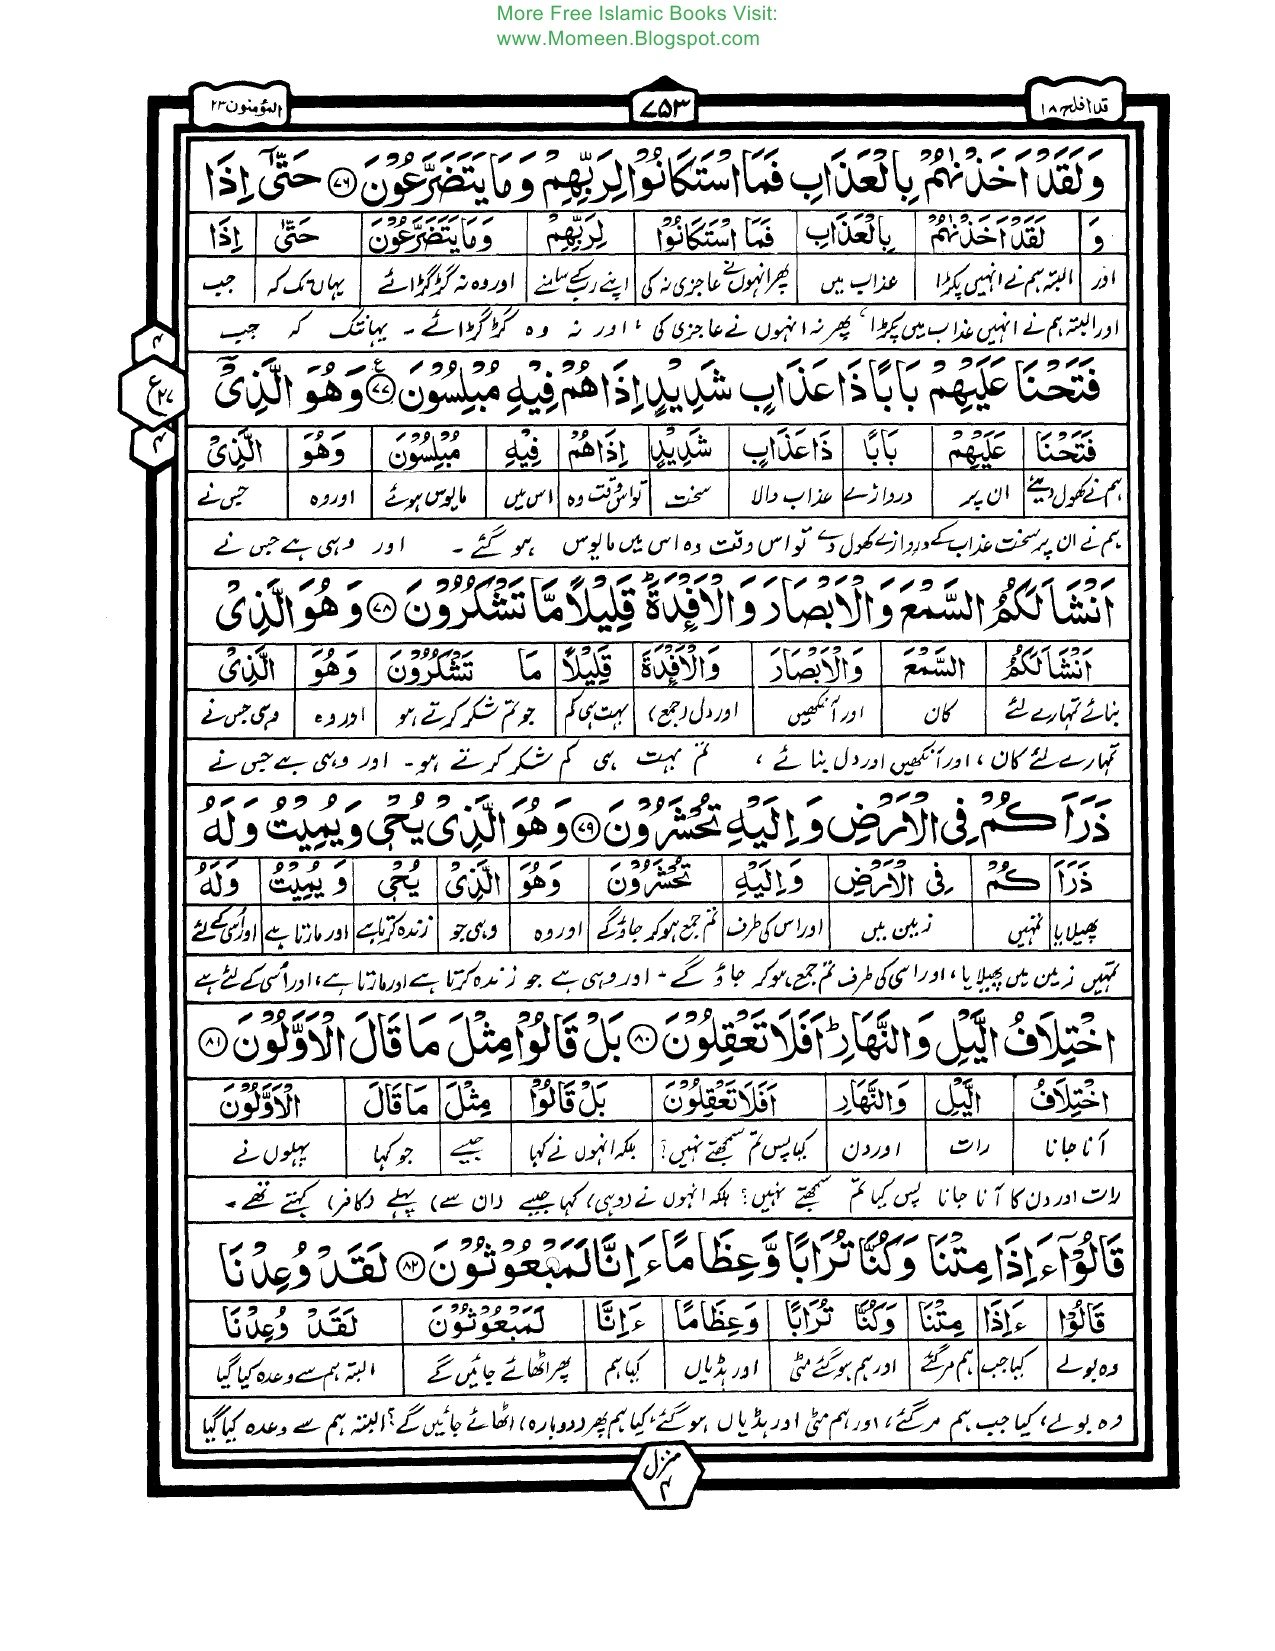 More Free Islamic Books Visit:
www.Momeen.Blogspot.com
قد افلح ۱۸
۷۵۳
المؤمنون ۲۳
وَلَقَدْ اَخَذْنٰهُمْ بِالْعَذَابِ فَمَا اسْتَكَانُوْا لِرَبِّهِمْ وَمَا يَتَضَرَّعُوْنَ ﴿۷۶﴾ حَتّٰىٓ اِذَا
وَ لَقَدْ اَخَذْنٰهُمْ بِالْعَذَابِ فَمَا اسْتَكَانُوْا لِرَبِّهِمْ وَمَا يَتَضَرَّعُوْنَ حَتّٰى اِذَا
اور البتہ ہم نے انہیں پکڑا عذاب میں پھر انہوں نے عاجزی نہ کی اپنے رب کے سامنے اور وہ نہ گڑگڑائے یہاں تک کہ جب
اور البتہ ہم نے انہیں عذاب میں پکڑا، پھر نہ انہوں نے عاجزی کی، اور نہ وہ گڑگڑائے۔ یہانتک کہ جب
فَتَحْنَا عَلَيْهِمْ بَابًا ذَا عَذَابٍ شَدِيْدٍ اِذَا هُمْ فِيْهِ مُبْلِسُوْنَ ﴿۷۷﴾ ع وَهُوَ الَّذِىْٓ
۴
ع ۲۷
۴
فَتَحْنَا عَلَيْهِمْ بَابًا ذَا عَذَابٍ شَدِيْدٍ اِذَا هُمْ فِيْهِ مُبْلِسُوْنَ وَهُوَ الَّذِىْٓ
ہم نے کھول دیئے ان پر دروازے عذاب والا سخت تو اس وقت وہ اس میں مایوس ہوئے اور وہ جس نے
ہم نے ان پر سخت عذاب کے دروازے کھول دے تو اس وقت وہ اس میں مایوس ہو گئے۔ اور وہی ہے جس نے
اَنْشَاَ لَكُمُ السَّمْعَ وَالْاَبْصَارَ وَالْاَفْـِٕدَةَ ؕ قَلِيْلًا مَّا تَشْكُرُوْنَ ﴿۷۸﴾ وَهُوَ الَّذِىْ
اَنْشَاَ لَكُمُ السَّمْعَ وَالْاَبْصَارَ وَالْاَفْـِٕدَةَ قَلِيْلًا مَا تَشْكُرُوْنَ وَهُوَ الَّذِىْ
بنائے تمہارے لئے کان اور آنکھیں اور دل (جمع) بہت ہی کم جو تم شکر کرتے ہو اور وہ وہی جس نے
تمہارے لئے کان، اور آنکھیں اور دل بنائے، تم بہت ہی کم شکر کرتے ہو۔ اور وہی ہے جس نے
ذَرَاَكُمْ فِى الْاَرْضِ وَاِلَيْهِ تُحْشَرُوْنَ ﴿۷۹﴾ وَهُوَ الَّذِىْ يُحْىٖ وَيُمِيْتُ وَلَهُ
ذَرَاَ كُمْ فِى الْاَرْضِ وَاِلَيْهِ تُحْشَرُوْنَ وَهُوَ الَّذِىْ يُحْىٖ وَيُمِيْتُ وَلَهُ
پھیلایا تمہیں زمین میں اور اس کی طرف تم جمع ہو کر جاؤ گے اور وہ وہی جو زندہ کرتا ہے اور مارتا ہے اور اُسی کے لئے
تمہیں زمین میں پھیلایا، اور اسی کی طرف تم جمع ہو کر جاؤ گے۔ اور وہی ہے جو زندہ کرتا ہے اور مارتا ہے، اور اُسی کے لئے ہے
اخْتِلَافُ الَّيْلِ وَالنَّهَارِ ؕ اَفَلَا تَعْقِلُوْنَ ﴿۸۰﴾ بَلْ قَالُوْا مِثْلَ مَا قَالَ الْاَوَّلُوْنَ ﴿۸۱﴾
اخْتِلَافُ الَّيْلِ وَالنَّهَارِ اَفَلَا تَعْقِلُوْنَ بَلْ قَالُوْا مِثْلَ مَا قَالَ الْاَوَّلُوْنَ
آنا جانا رات اور دن کیا پس تم سمجھتے نہیں؟ بلکہ انہوں نے کہا جیسے جو کہا پہلوں نے
رات اور دن کا آنا جانا پس کیا تم سمجھتے نہیں؟ بلکہ انہوں نے (وہی) کہا جیسے (ان سے) پہلے (کافر) کہتے تھے۔
قَالُوْٓا ءَاِذَا مِتْنَا وَكُنَّا تُرَابًا وَّعِظَامًا ءَاِنَّا لَمَبْعُوْثُوْنَ ﴿۸۲﴾ لَقَدْ وُعِدْنَا
قَالُوْٓا ءَاِذَا مِتْنَا وَكُنَّا تُرَابًا وَّعِظَامًا ءَاِنَّا لَمَبْعُوْثُوْنَ لَقَدْ وُعِدْنَا
وہ بولے کیا جب ہم مر گئے اور ہم ہو گئے مٹی اور ہڈیاں کیا ہم پھر اٹھائے جائیں گے البتہ ہم سے وعدہ کیا گیا
وہ بولے، کیا جب ہم مر گئے، اور ہم مٹی اور ہڈیاں ہو گئے، کیا ہم پھر (دوبارہ) اٹھائے جائیں گے؟ البتہ ہم سے وعدہ کیا گیا
منزل ۴